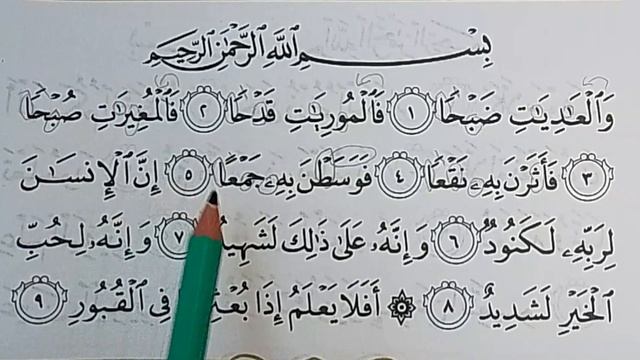 بِسْمِ اللَّهِ الرَّحْمَٰنِ الرَّحِيمِ
وَالْعَادِيَاتِ ضَبْحًا ١ فَالْمُورِيَاتِ قَدْحًا ٢ فَالْمُغِيرَاتِ صُبْحًا
٣ فَأَثَرْنَ بِهِ نَقْعًا ٤ فَوَسَطْنَ بِهِ جَمْعًا ٥ إِنَّ الْإِنسَانَ
لِرَبِّهِ لَكَنُودٌ ٦ وَإِنَّهُ عَلَىٰ ذَٰلِكَ لَشَهِيدٌ ٧ وَإِنَّهُ لِحُبِّ
الْخَيْرِ لَشَدِيدٌ ٨ ۞ أَفَلَا يَعْلَمُ إِذَا فِي الْقُبُورِ ٩